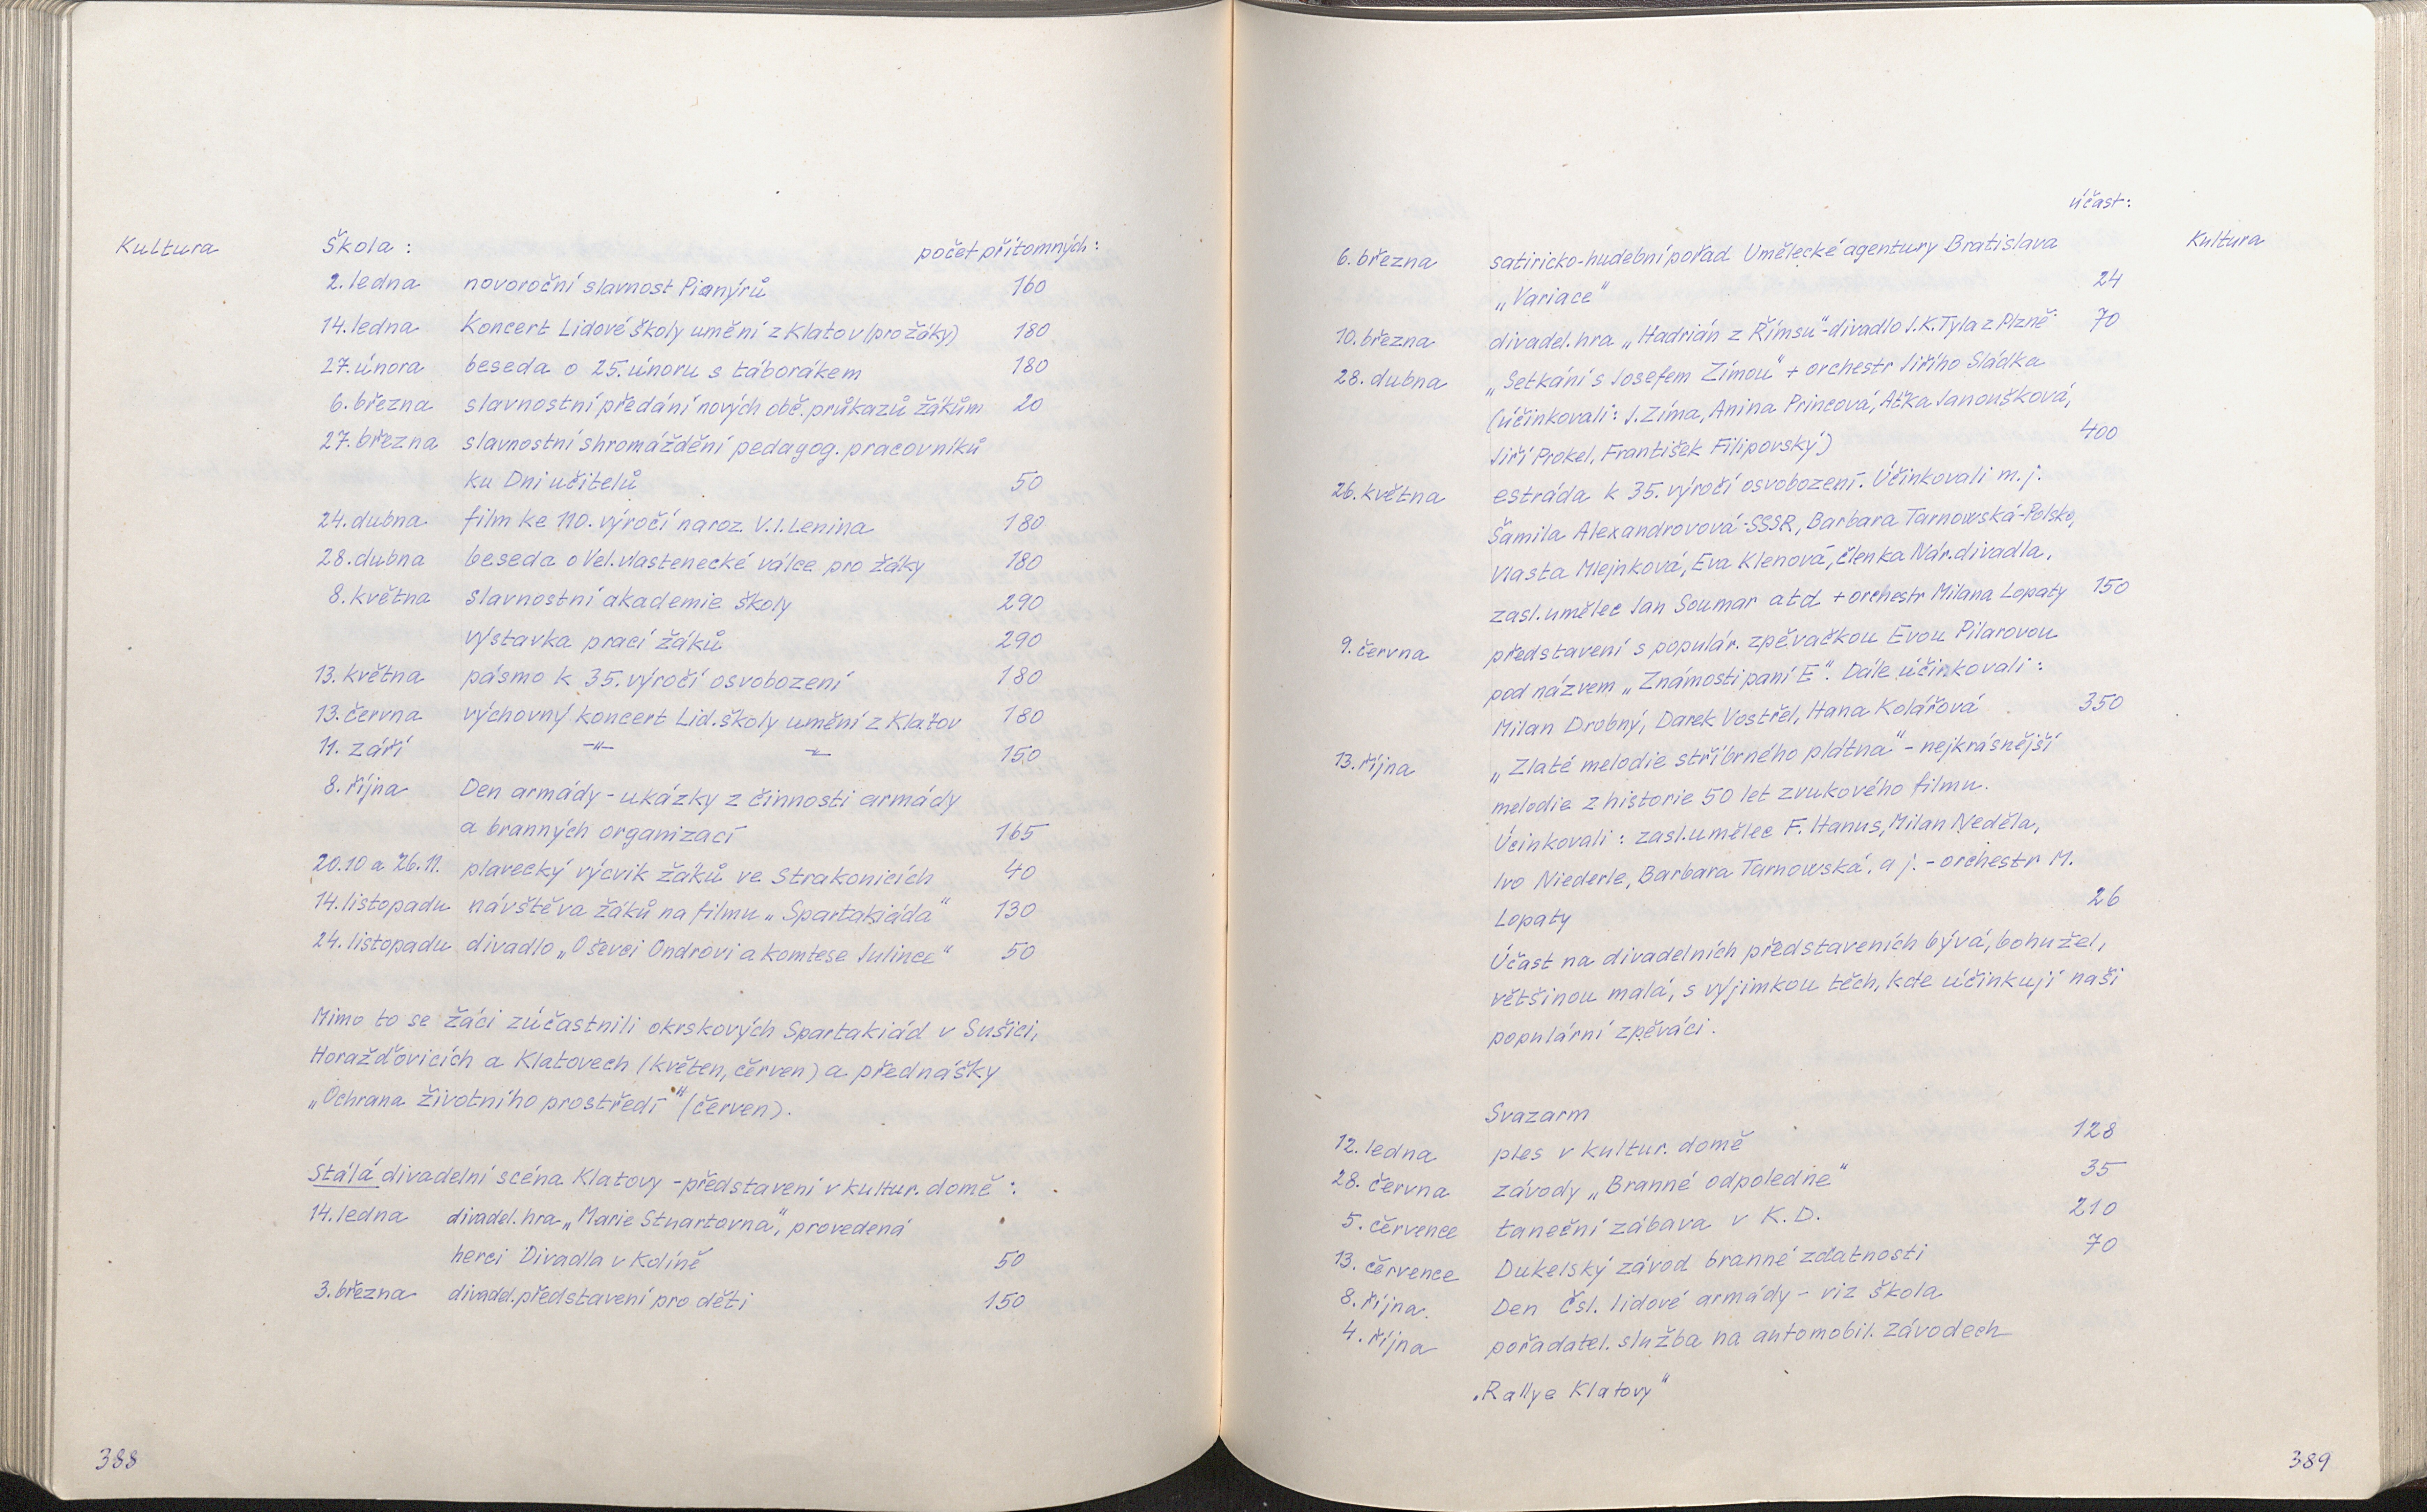 Kultura
Škola :
počet přítomných :
2. ledna novoroční slavnost Pionýrů 160
14. ledna Koncert Lidové školy umění z Klatov (pro žáky) 180
27. února beseda o 25. únoru s táborákem 180
6. března slavnostní předání nových obč. průkazů žákům 20
27. března slavnostní shromáždění pedagog. pracovníků
ku Dni učitelů 50
24. dubna film ke 110. výročí naroz. V. I. Lenina 180
28. dubna beseda o Vel. vlastenecké válce pro žáky 180
8. května slavnostní akademie školy 290
výstavka prací žáků 290
13. května pásmo k 35. výročí osvobození 180
13. června výchovný koncert Lid. školy umění z Klatov 180
11. září -"- -"- 150
8. října Den armády - ukázky z činnosti armády
a branných organizací 165
20.10 a 26.11. plavecký výcvik žáků ve Strakonicích 40
14. listopadu návštěva žáků na filmu „Spartakiáda" 130
24. listopadu divadlo „O ševci Ondrovi a komtese Julince" 50
Mimo to se žáci zúčastnili okrskových Spartakiád v Sušici,
Horažďovicích a Klatovech (květen, červen) a přednášky
„Ochrana životního prostředí" (červen).
Stálá divadelní scéna Klatovy - představení v kultur. domě :
14. ledna divadel. hra „Marie Stuartovna", provedená
herci Divadla v Kolíně 50
3. března divadel. představení pro děti 150
388
účast :
Kultura
6. března satiricko-hudební pořad Umělecké agentury Bratislava
„Variace" 24
10. března divadel. hra „Hadrián z Římsů" - divadlo J. K. Tyla z Plzně 70
28. dubna „Setkání s Josefem Zímou" + orchestr Jiřího Sládka
(účinkovali : J. Zíma, Anina Princová, Aťka Janoušková,
Jiří Prokel, František Filipovský) 400
26. května estráda k 35. výročí osvobození. Účinkovali m. j.
Šamila Alexandrovová - SSSR, Barbara Tarnowská - Polsko,
Vlasta Mlejnková, Eva Klenová, členka Nár. divadla,
zasl. umělec Jan Soumar atd + orchestr Milana Lopaty 150
9. června představení s populár. zpěvačkou Evou Pilarovou
pod názvem „Známosti paní E". Dále účinkovali :
Milan Drobný, Darek Vostřel, Hana Kolářová 350
13. října „Zlaté melodie stříbrného plátna" - nejkrásnější
melodie z historie 50 let zvukového filmu.
Účinkovali : zasl. umělec F. Hanus, Milan Neděla,
Ivo Niederle, Barbara Tarnowská, a j. - orchestr M.
Lopaty 26
Účast na divadelních představeních bývá, bohužel,
většinou malá, s vyjímkou těch, kde účinkují naši
populární zpěváci.
Svazarm
12. ledna ples v kultur. domě 128
28. června závody „Branné odpoledne" 35
5. července taneční zábava v K. D. 210
13. července Dukelský závod branné zdatnosti 70
8. října Den Čsl. lidové armády - viz škola
4. října pořadatel. služba na automobil. závodech
„Rallye Klatovy"
389